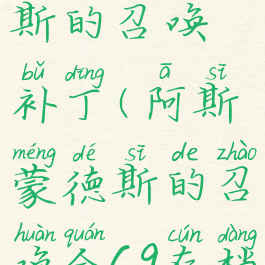 斯的召唤
bǔ dīng ā sī
补丁(阿斯
méng dé sī de zhào
蒙德斯的召
huàn quán cún dàng
唤全(9存档